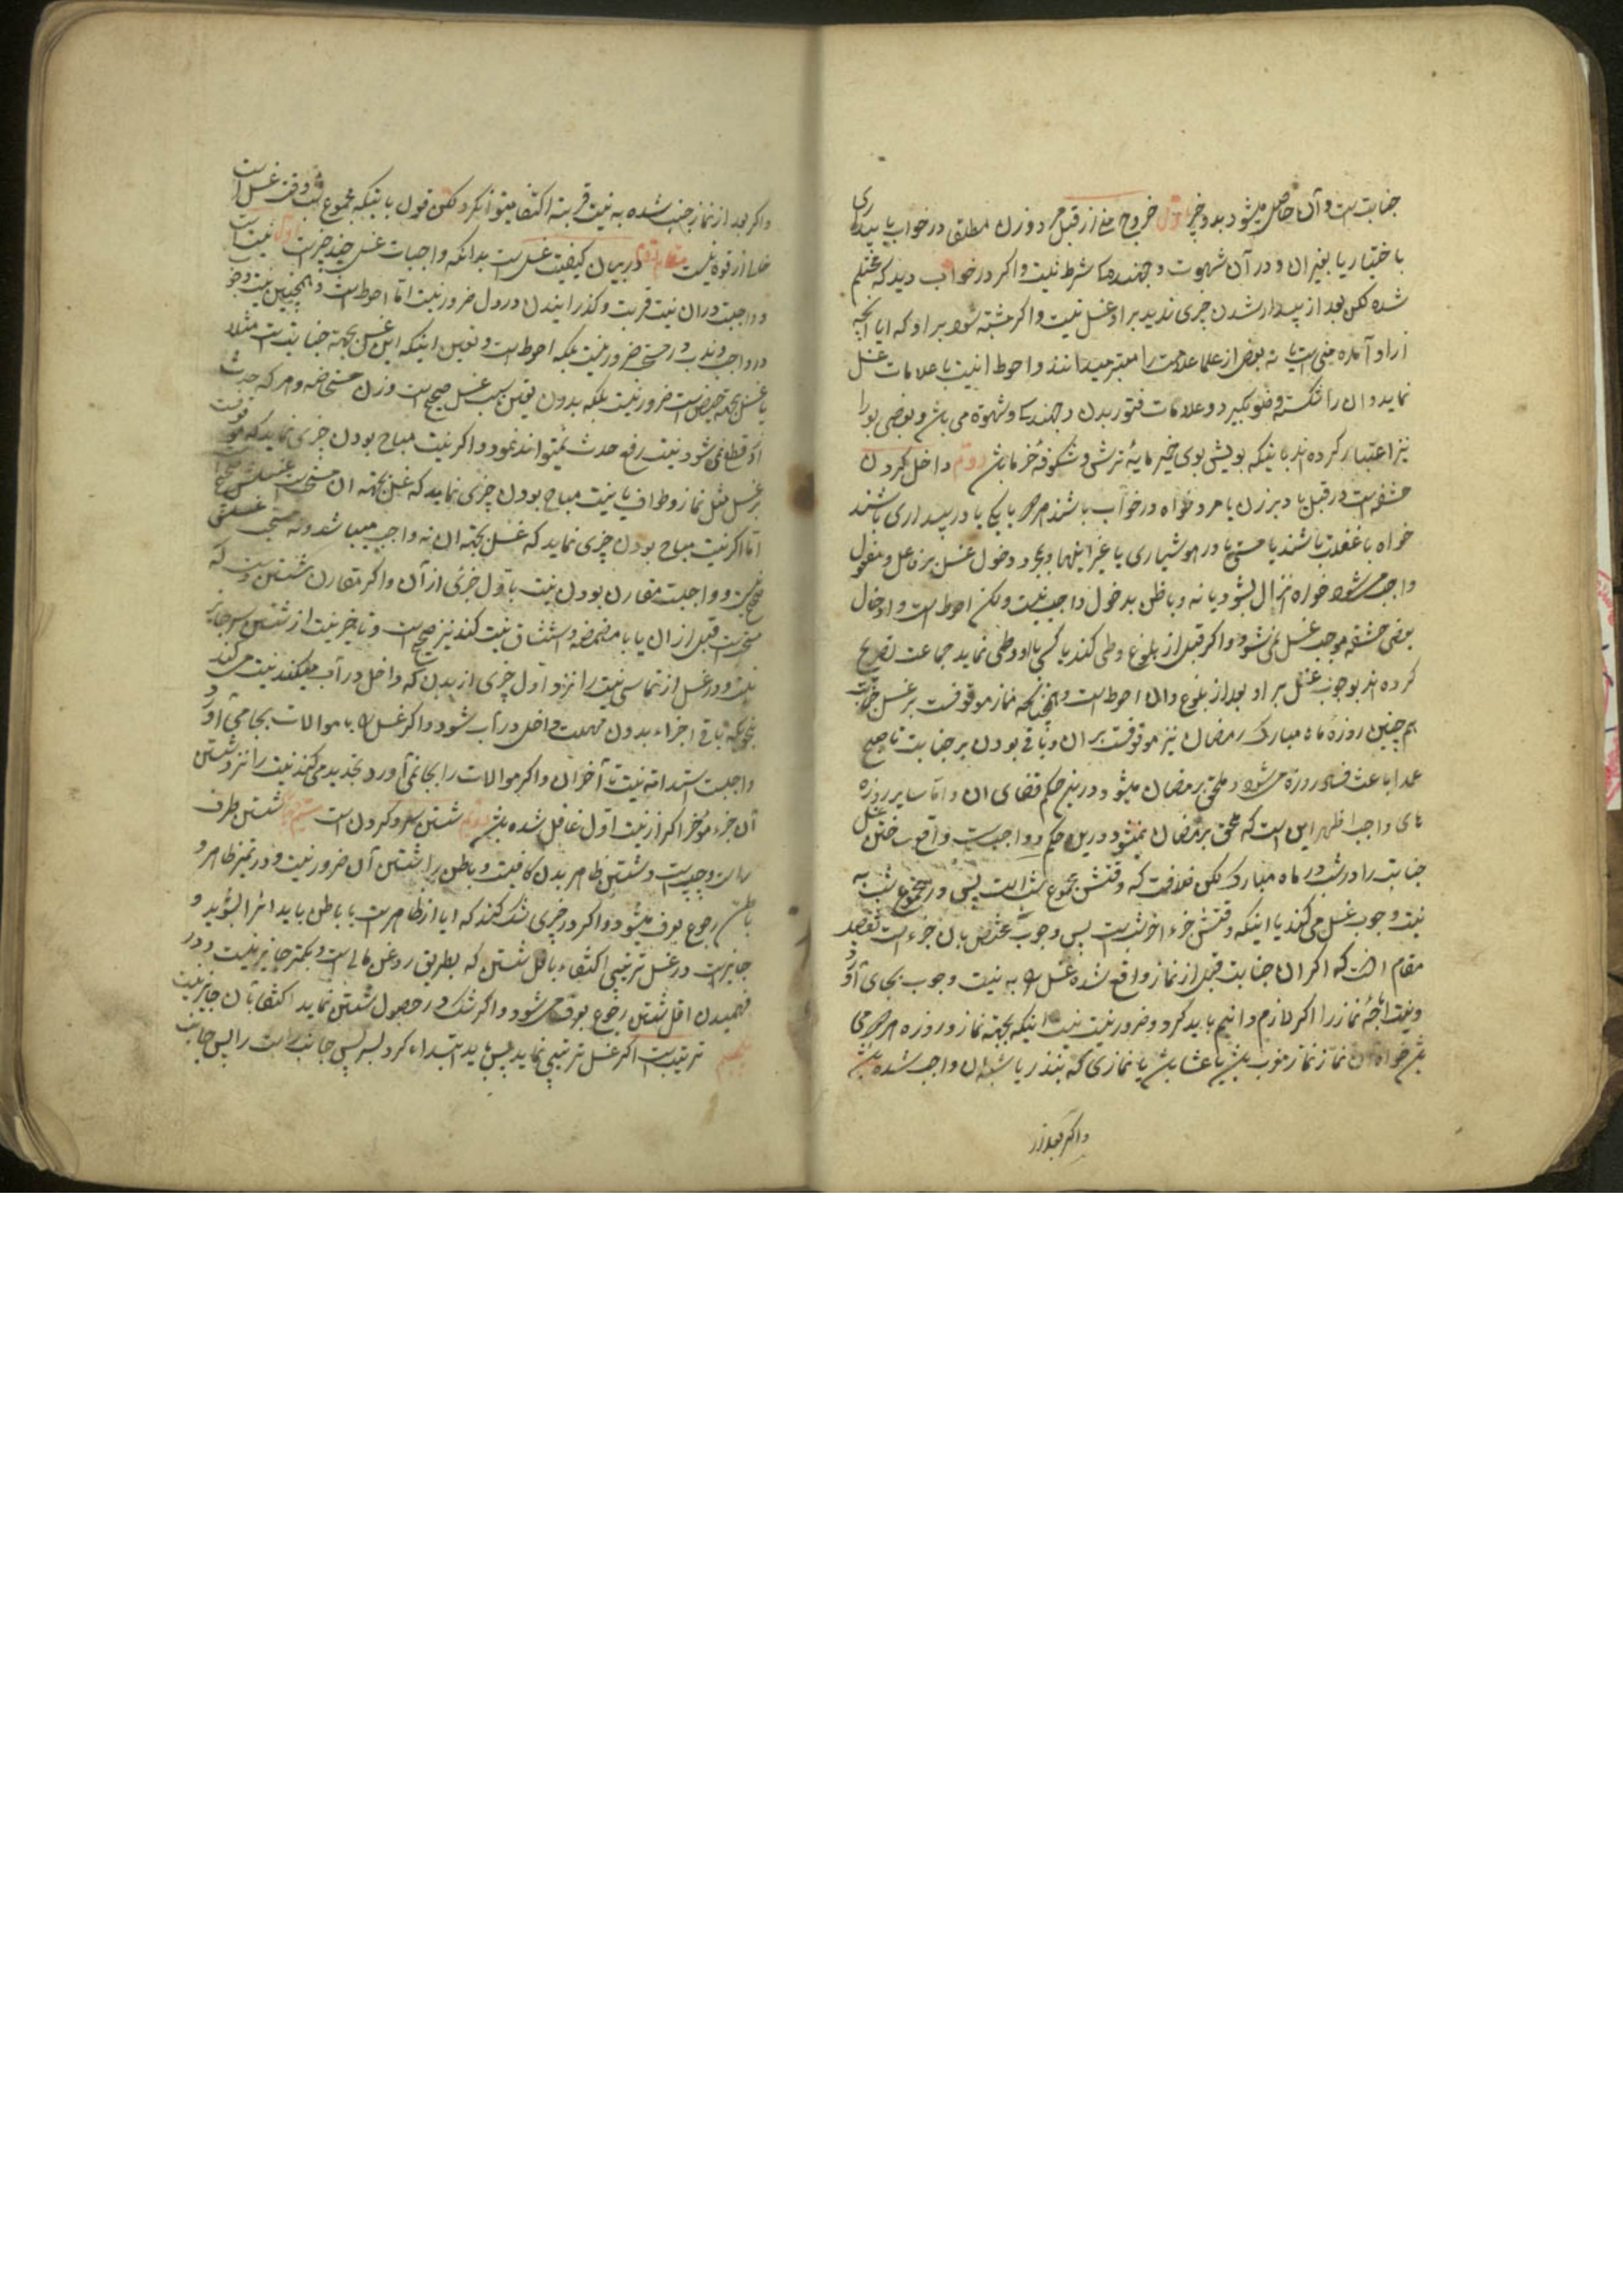 جنابتست و آن حاصل میشود بدو چیز اول خروج منی از قبل مرد و زن مطلقا در خواب یا بیداری
با ختیار یا بغیر ان و در آن شهوت و جهندهکی شرط نیست و اکر در خواب دید که محتلم
شده لکن بعد از بیدار شدن چیزی ندید بر او غسل نیست و اکر مشتبه شود بر او که ایا انچه
از او آمده منی است یا نه بعضی از علما علامت را معتبر میدانند و احوط انست با علامات غسل
نماید و ان را شکسته وضو بگیرد و علامات فتور بدن و جهندکی و شهوة می باشد و بعضی بو را
نیز اعتبار کرده اند باینکه بویش بوی خمیر مایهٔ ترش و شکوفهٔ خرما باشد دوم داخل کردن
حشفه است در قبل یا دبر زن یا مرد خواه در خواب باشند هر دو یا یکی یا در بیداری باشند
خواه با غفلت باشند یا مستی یا در هوشیاری یا غیر اینها و بمجرد دخول غسل بر فاعل و مفعول
واجب میشود خواه انزال بشود یا نه و با ظن بدخول واجب نیست ولکن احوط است و ادخال
بعضی حشفه موجب غسل نمیشود و اکر قبل از بلوغ وطی کند یا کسی با او وطی نماید جماعت تصریح
کرده اند بوجوب غسل بر او بعد از بلوغ و ان احوط است و همچنانکه نماز موقوفست بر غسل جنابت
هم چنین روزهٔ ماه مبارک رمضان نیز موقوفست بر ان و باقی بودن بر جنابت تا صبح
عمدا باعث فساد روزه میشود و ملحق برمضان میشود در این حکم قضای ان و اما سایر روزه
های واجب اظهر این است که ملحق برمضان نمیشود در این حکم و واجبست واقع ساختن غسل
جنابت را در شب در ماه مبارک لکن خلافست که وقتش مجموع شب است پس در مجموع شب به
نیت وجوب غسل می کند یا اینکه وقتش جزء اخر شب است پس وجوب مختص بان جزء است
مقام انست که اکر ان جنابت قبل از نماز واقع شده غسل را به نیت وجوب بجای آورد
را اکر لازم دانیم باید کرد و ضرور نیست نیت اینکه بجهة نماز و روزه هر دو می
باشد خواه آن نماز نماز مغرب باشد یا عشا باشد یا نمازی که بنذر یا شبه ان واجب شده باشد
و اکر بعد از
و اکر بعد از نماز جنب شده به نیت قربت اکتفا میتوان کرد و لکن قول باینکه مجموع شب وقت غسل است
خالی از قوة نیست مقام دوم در بیان کیفیت غسل است بدانکه واجبات غسل چند چیز است اول نیت است
و واجبست در ان نیت قربت و کذرانیدن در دل ضرور نیست اما احوط است و همچنین نیت وجوب
در واجب و ندب در مستحب ضرور نیست بلکه احوط است و تعیین اینکه این غسل بجهة جنابت است مثلا
یا غسل بجهة حیض است ضرور نیست بلکه بدون تعیین سبب غسل صحیح است و زن مستحاضه و هر که حدث
او قطع نمی شود نیت رفع حدث نمیتواند نمود و اکر نیت مباح بودن چیزی نماید که موقوفست
بر غسل مثل نماز و طواف یا نیت مباح بودن چیزی نماید که غسل بجهة ان مستحب است غسلش صحیح است
اما اکر نیت مباح بودن چیزی نماید که غسل بجهة ان نه واجب میباشد و نه مستحب غسلش
صحیح نیست و واجبست مقارن بودن نیت باول جزئی از آن و اکر مقارن شستن دست که
مستحب است قبل از ان یا با مضمضه و استنشاق نیت کند نیز صحیح است و تاخیر نیت از شستن سر جایز
نیست و در غسل ارتماسی نیت را نزد اول جزئی از بدن که داخل در آب میکند نیت می کند
بنحویکه باقی اجزاء بدون مهلت داخل در آب شود و اکر غسل را با موالات بجا می آورد
واجبست استدامه نیت تا آخر ان و اکر موالات را بجا نمی آورد تجدید می کند نیت را نزد شستن
آن جزء مؤخر اکر از نیت اول غافل شده باشد دوم شستن سر و کردن است سیم شستن طرف
راست و چپ است و شستن ظاهر بدن کافیست و باطن را شستن آن ضرور نیست و در تمیز ظاهر و
باطن رجوع بعرف میشود و اکر در چیزی شک کند که ایا از ظاهر است یا باطن باید انرا بشوید و
جایز است در غسل ترتیبی اکتفاء باقل شستن که بطریق روغن مالی است و بکمتر جایز نیست و در
فهمیدن اقل شستن رجوع بعرف میشود و اکر شک در حصول شستن نماید اکتفا بآن جایز نیست
ترتیبست اکر غسل ترتیبی نماید پس باید ابتداء کرد بسر پس جانب راست را پس جانب